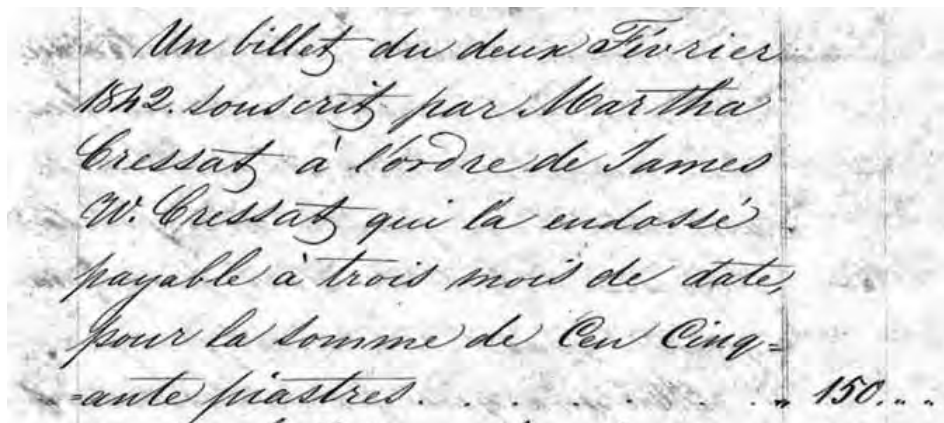 Un billet du deux Février
1842. souscrit par Martha
Cressat à l'ordre de James
W. Cressat qui l'a endossé
payable à trois mois de date,
pour la somme de Cen Cinq=
=ante piastres. . . . . . . . " 150. " "